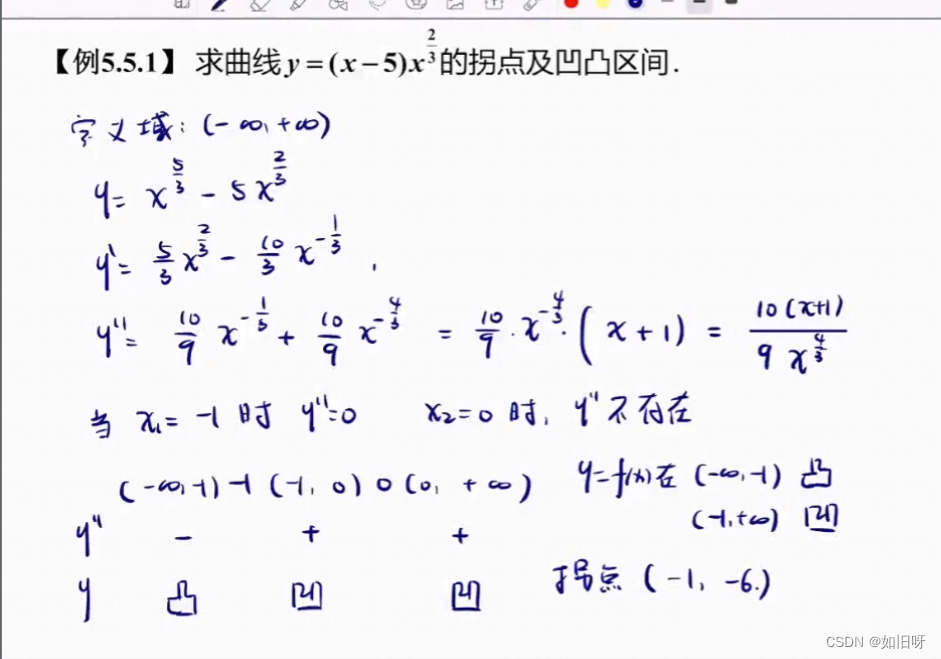 【例5.5.1】求曲线y=(x−5)x^{2/3}的拐点及凹凸区间.
定义域: (-∞, +∞)
y= x^{5/3} - 5x^{2/3}
y'= 5/3 x^{2/3} - 10/3 x^{-1/3},
y''= 10/9 x^{-1/3} + 10/9 x^{-4/3} = 10/9 · x^{-4/3} · (x+1) = 10(x+1) / 9x^{4/3}
当 x₁= -1 时 y''=0 x₂=0 时, y''不存在
(-∞, -1) -1 (-1, 0) 0 (0, +∞) y=f(x)在 (-∞, -1) 凸
(-1, +∞) 凹
y'' - + +
y 凸 凹 凹 拐点 (-1, -6.)
CSDN @如旧呀